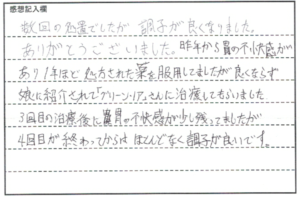 感想記入欄
数回の処置でしたが 調子が良くなりました。
ありがとうございました。昨年から胃の不快感が
あり1年ほど処方された薬を服用してましたが良くならず
娘に紹介されて「グリーン・リア」さんに治療してもらいました
3回目の治療後に胃の不快感が少し残ってましたが
4回目が終わってからは ほとんどなく調子が良いです。